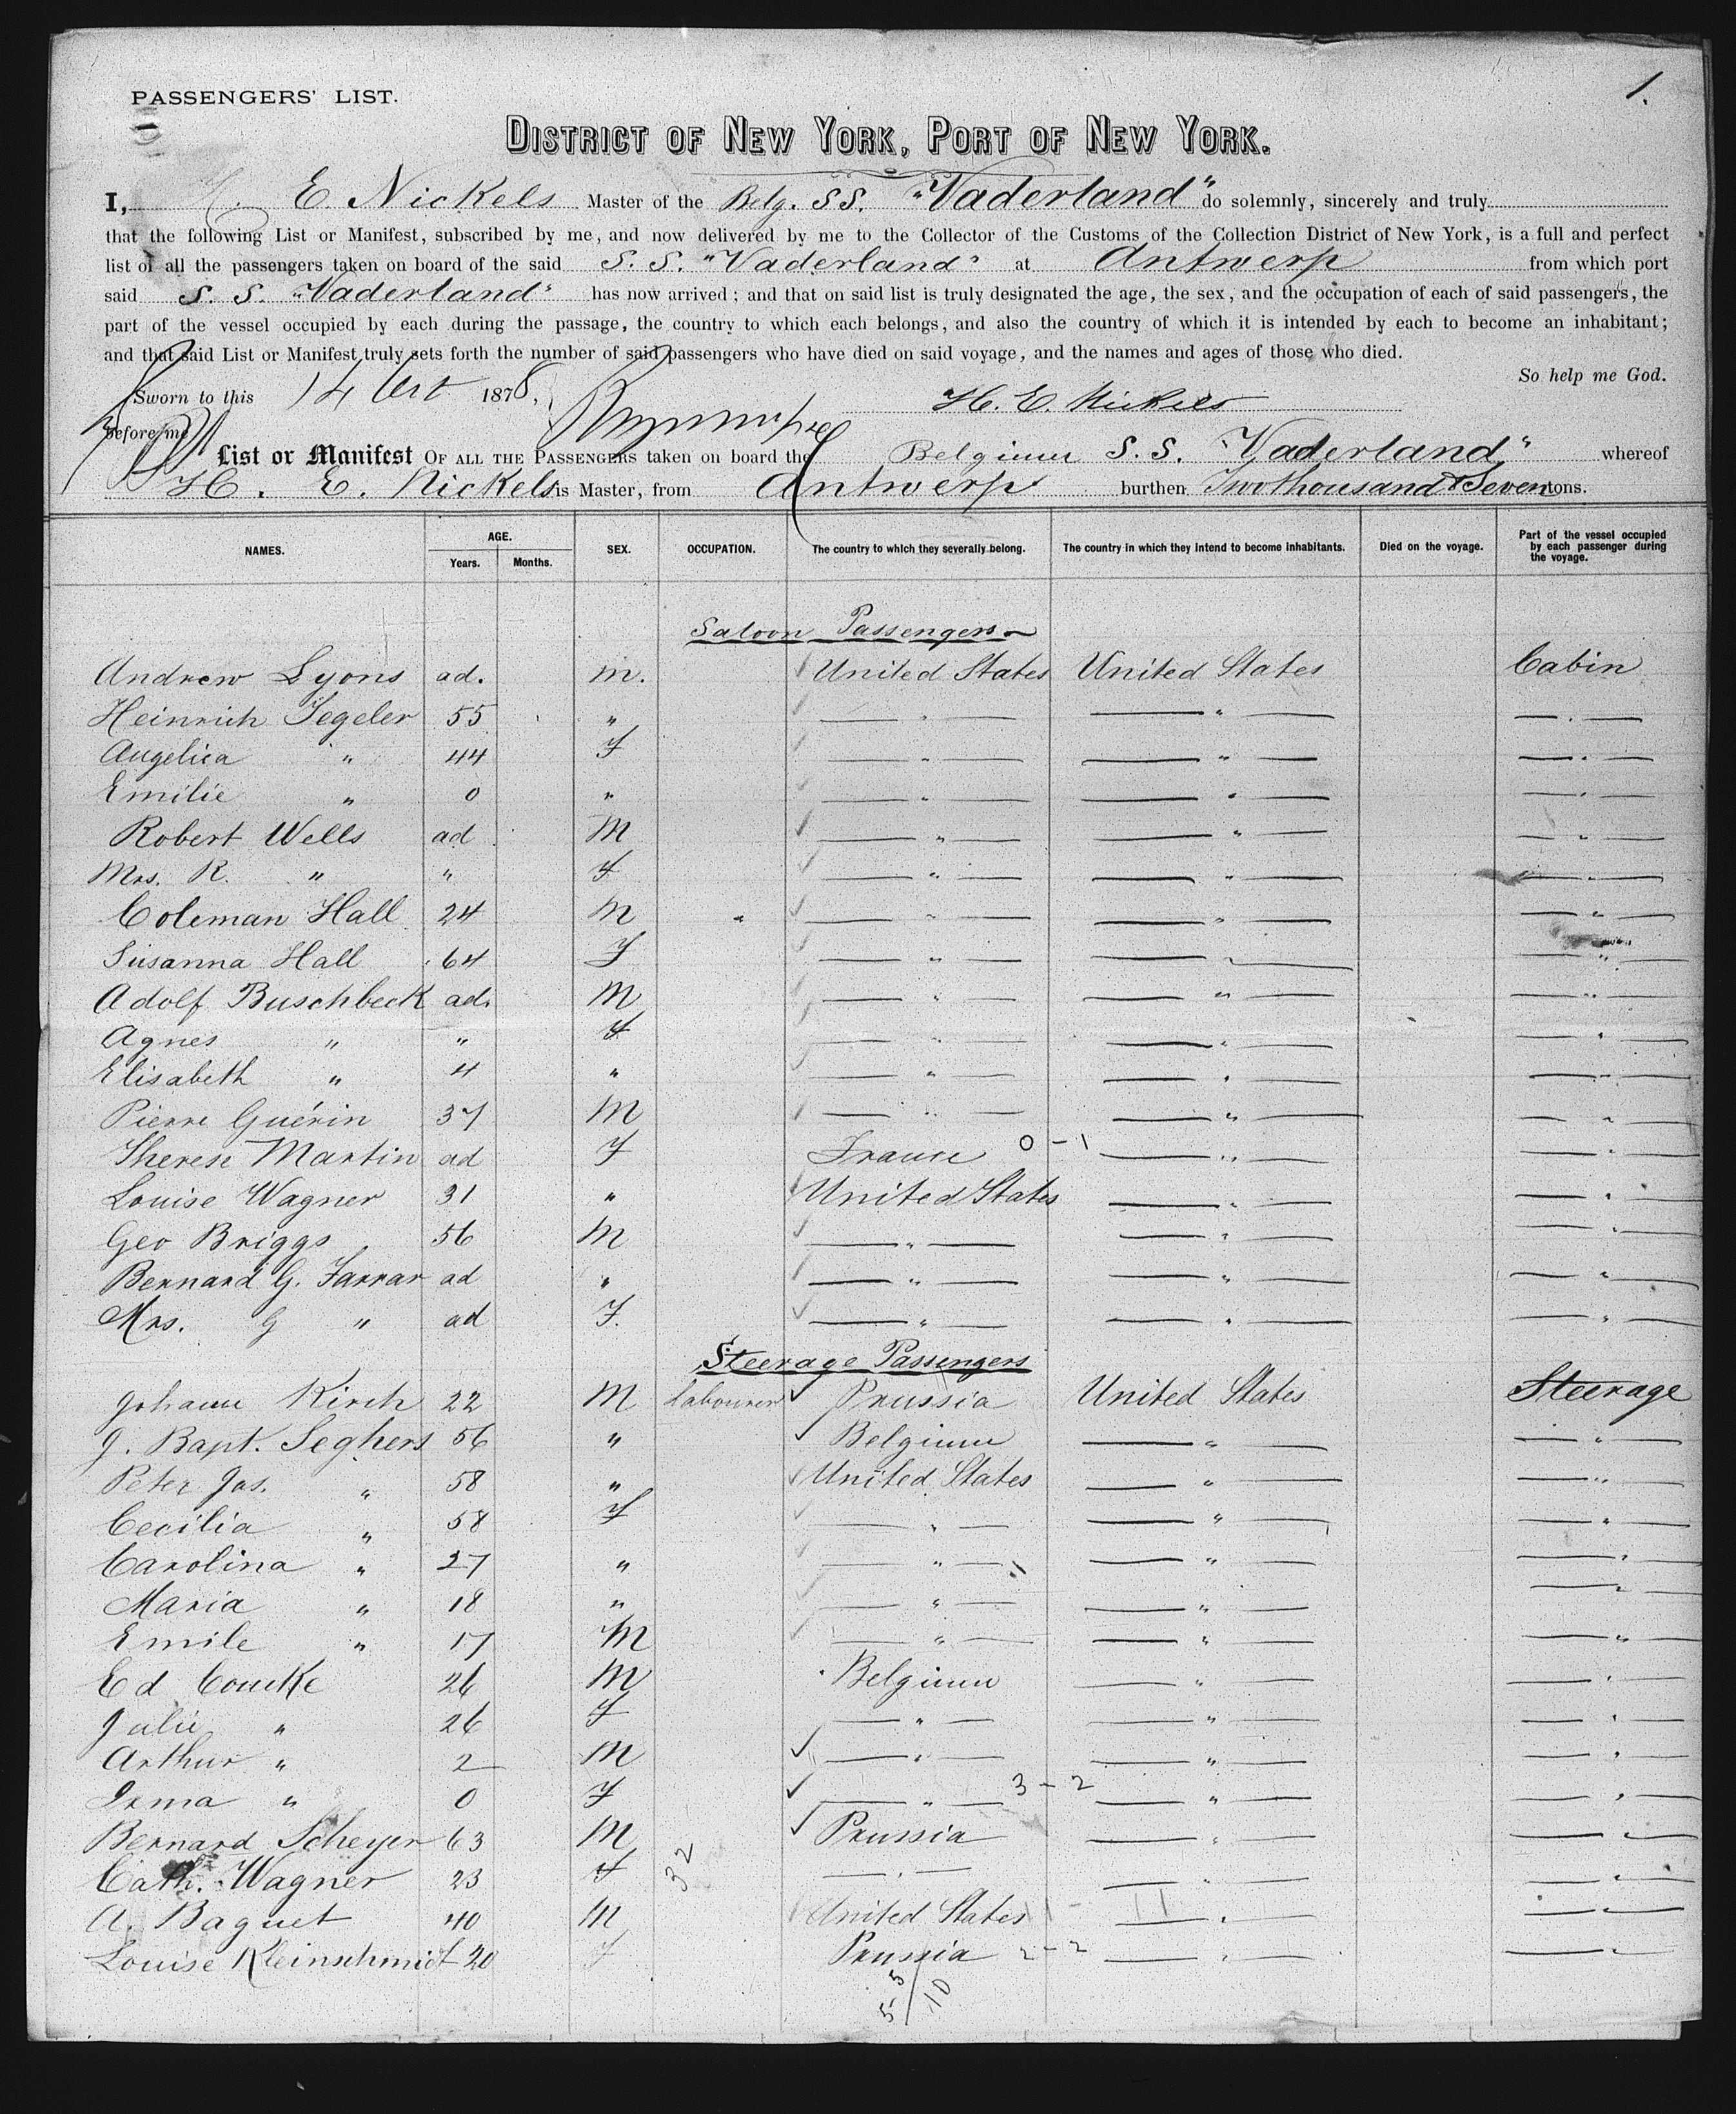 1.
PASSENGERS' LIST.
DISTRICT OF NEW YORK, PORT OF NEW YORK.
I, H. E. Nickels Master of the Belg. SS. "Vaderland" do solemnly, sincerely and truly
that the following List or Manifest, subscribed by me, and now delivered by me to the Collector of the Customs of the Collection District of New York, is a full and perfect
list of all the passengers taken on board of the said S. S. "Vaderland" at Antwerp from which port
said S. S. "Vaderland" has now arrived; and that on said list is truly designated the age, the sex, and the occupation of each of said passengers, the
part of the vessel occupied by each during the passage, the country to which each belongs, and also the country of which it is intended by each to become an inhabitant;
and that said List or Manifest truly sets forth the number of said passengers who have died on said voyage, and the names and ages of those who died.
So help me God.
Sworn to this 14 Oct 1878,
H. E. Nickels
before me
List or Manifest OF ALL THE PASSENGERS taken on board the Belgium S. S. "Vaderland" whereof
H. E. Nickels is Master, from Antwerp burthen Two thousand & Seven tons.
NAMES. AGE. Years. Months. SEX. OCCUPATION. The country to which they severally belong. The country in which they intend to become inhabitants. Died on the voyage. Part of the vessel occupied by each passenger during the voyage.
Saloon Passengers
Andrew Lyons ad. M. United States United States Cabin
Heinrich Tegeler 55 " " " "
Angelica " 44 F " " "
Emilie " 0 " " " "
Robert Wells ad M " " "
Mrs. R. " " F " " "
Coleman Hall 24 M " " "
Susanna Hall 64 F " " "
Adolf Buschbeck ad. M " " "
Agnes " " F " " "
Elisabeth " 4 " " " "
Pierre Guérin 37 M " " "
Therese Martin ad F France 0 - 1 " "
Louise Wagner 31 " United States " "
Geo Briggs 56 M " " "
Bernard G. Farrar ad " " " "
Mrs. G " ad F. " " "
Steerage Passengers
Johann Kirch 22 M Labourer Prussia United States Steerage
J. Bapt. Seghers 56 " Belgium " "
Peter Jos. " 58 " United States " "
Cecilia " 58 F " " "
Carolina " 27 " " " "
Maria " 18 " " " "
Emile " 17 M " " "
Ed Coucke 26 M Belgium " "
Julie " 26 F " " "
Arthur " 2 M " " "
Irma " 0 F " 3 - 2 " "
Bernard Scheyer 63 M Prussia " "
Cath. Wagner 23 F 32 " " "
A. Baguet 40 M United States " "
Louise Kleinschmidt 20 F Prussia 2 - 2 " "
5-5/10